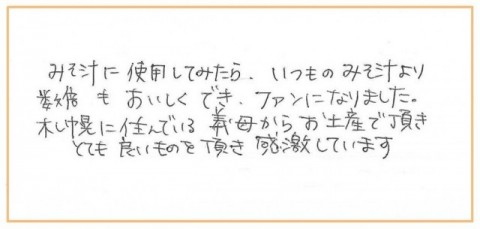 みそ汁に使用してみたら、いつものみそ汁より
数倍もおいしくでき、ファンになりました。
札幌に住んでいる義母からお土産で頂き
とても良いものを頂き感激しています